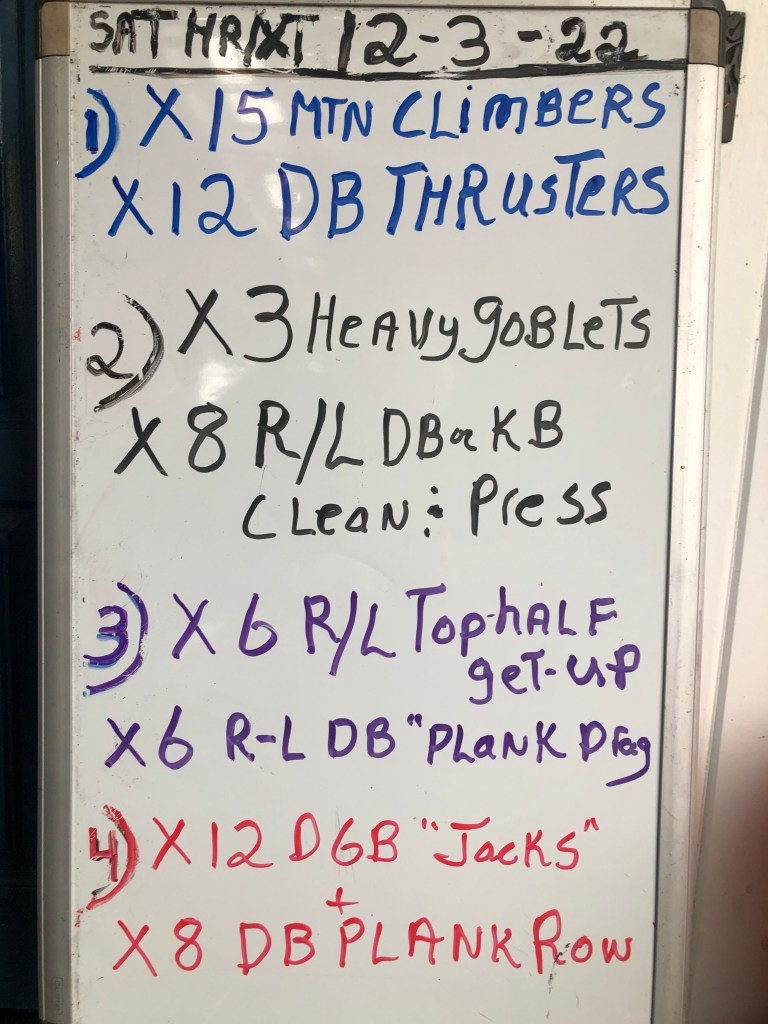 SAT HR/XT 12-3-22
1) X 15 MTN CLIMBERS
X 12 DB THRUSTERS
2) X 3 HEAVY GOBLETS
X 8 R/L DB or KB
CLEAN & PRESS
3) X 6 R/L TOP-HALF
GET-UP
X 6 R-L DB "PLANK Drag
4) X 12 DGB "JACKS"
+
X 8 DB PLANK ROW